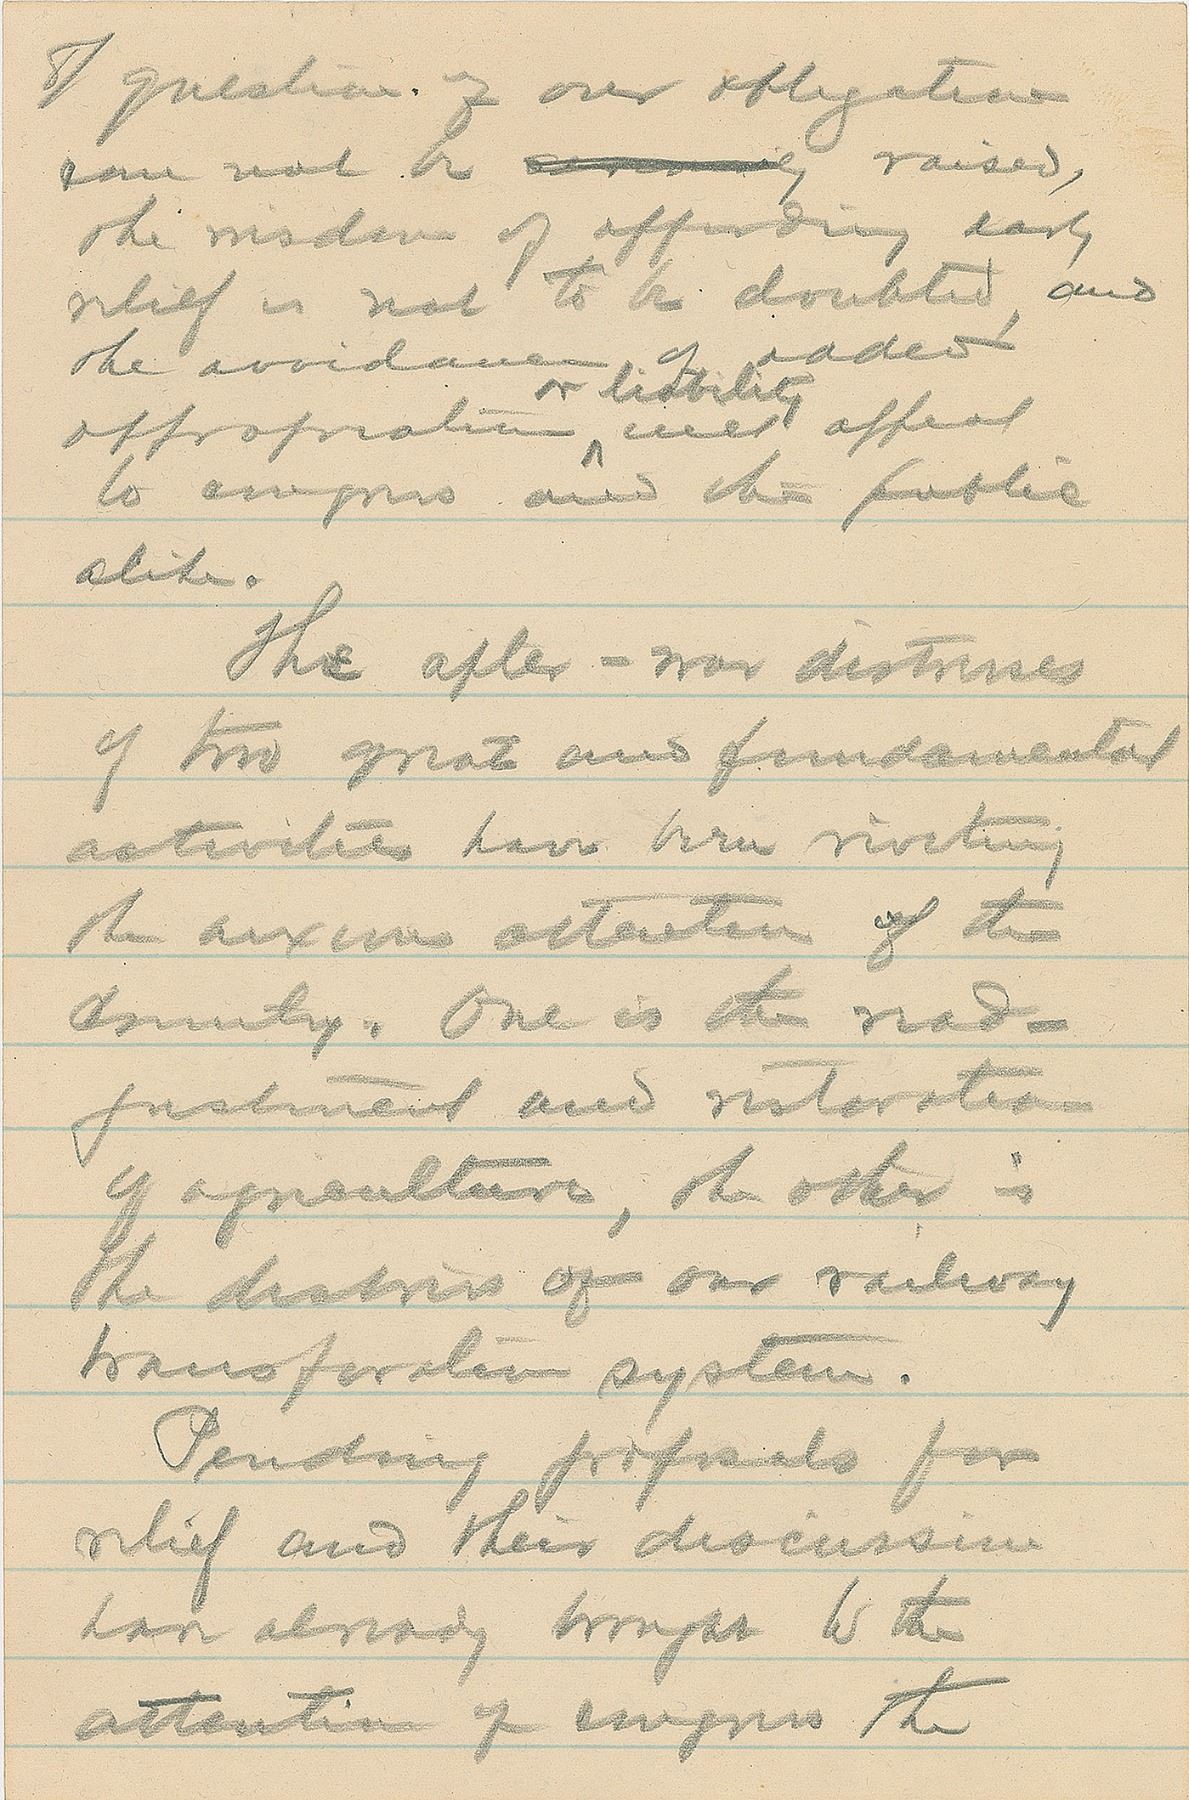 8/ question of our obligation
can not be seriously raised,
the wisdom of affording early
relief is not to be doubted, and
the avoidance of added
or liability
appropriation ^ will appeal
to congress and the public
alike.
The after-war distresses
of two great and fundamental
activities have been riveting
the anxious attention of the
Country. One is the read-
justment and restoration
of agriculture, the other is
the distress of our railway
transportation system.
Pending proposals for
relief and their discussion
have already brought to the
attention of congress the